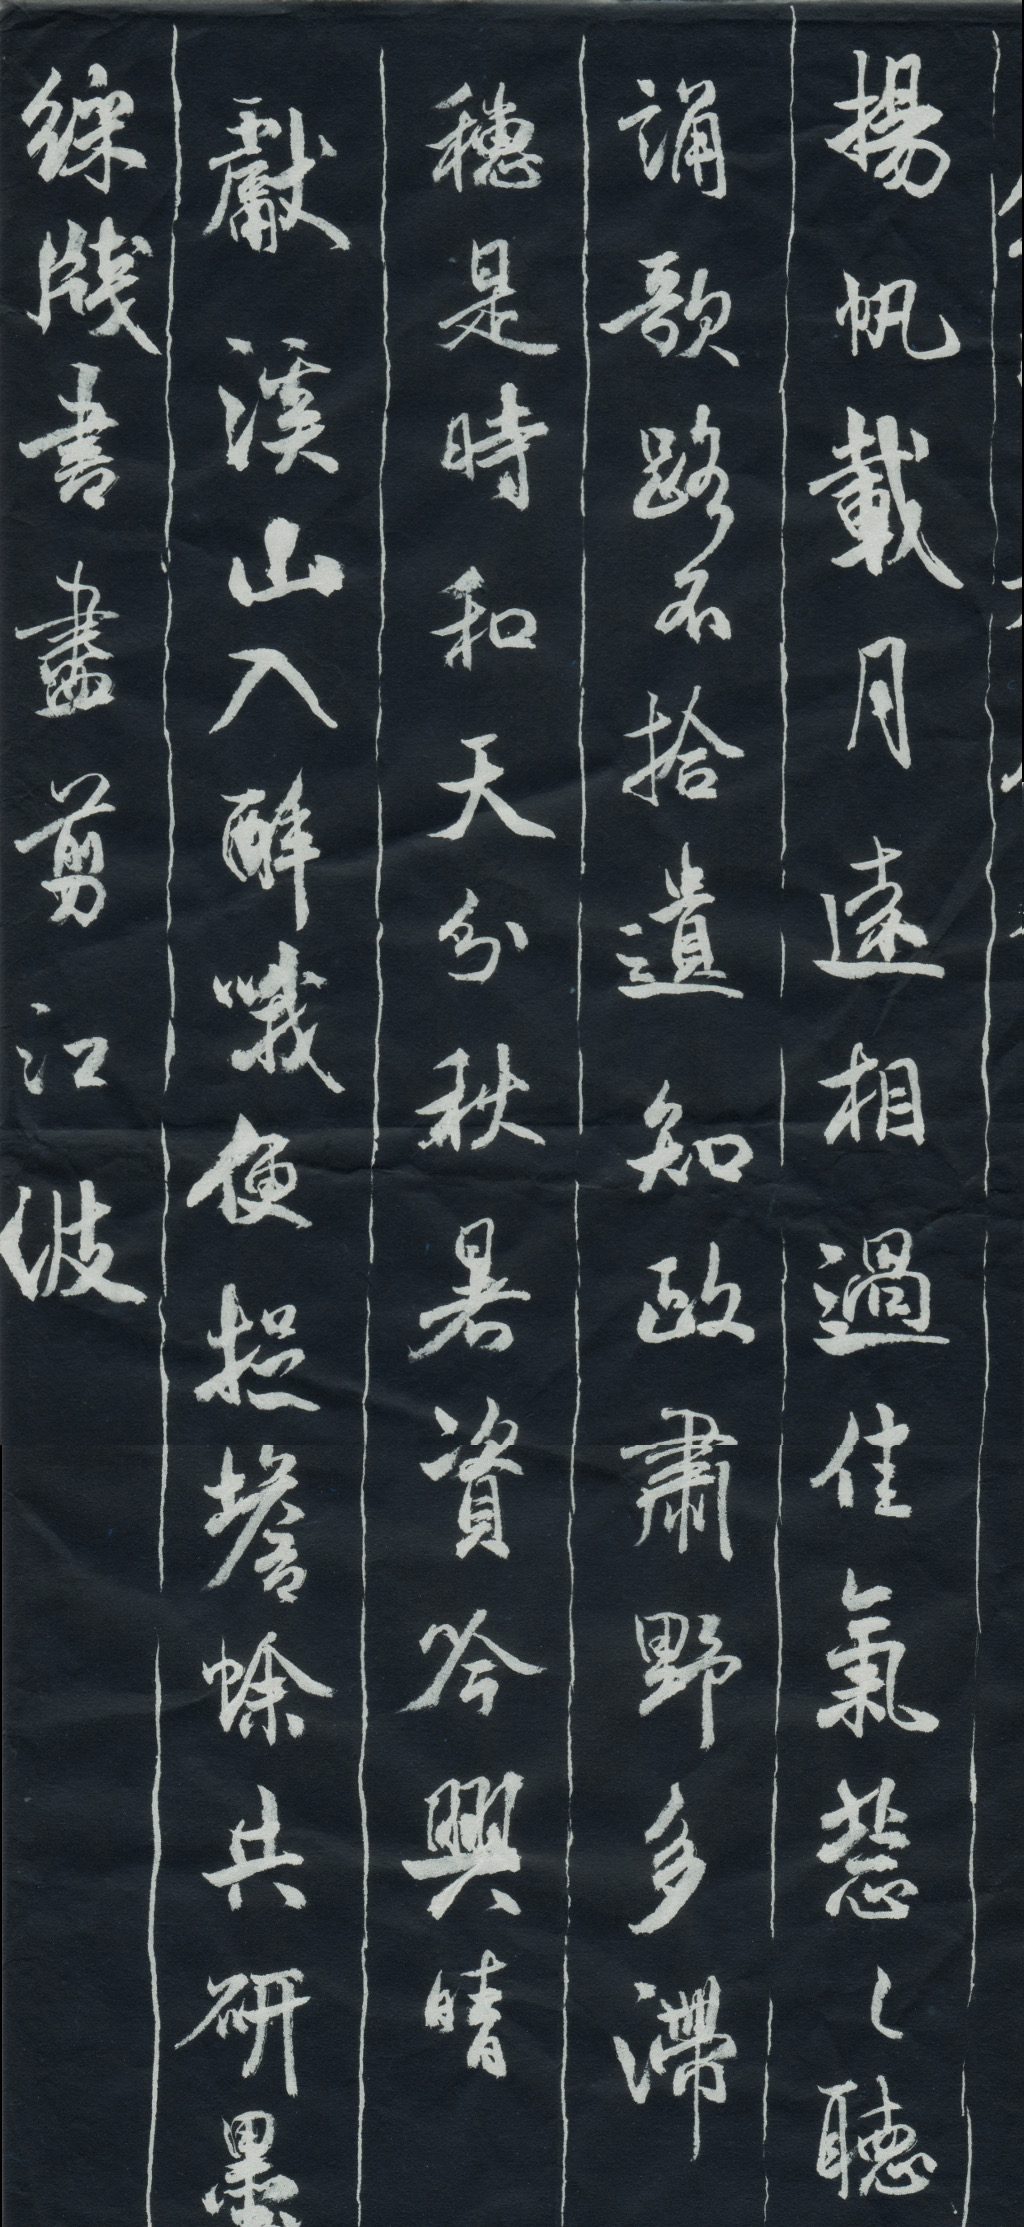 揚帆載月遠相過佳氣葱々聽
誦歌路不拾遺知政肅野多滯
穗是時和天分秋暑資吟興晴
獻溪山入醉哦便捉蟾蜍共研墨
綵牋書盡剪江波